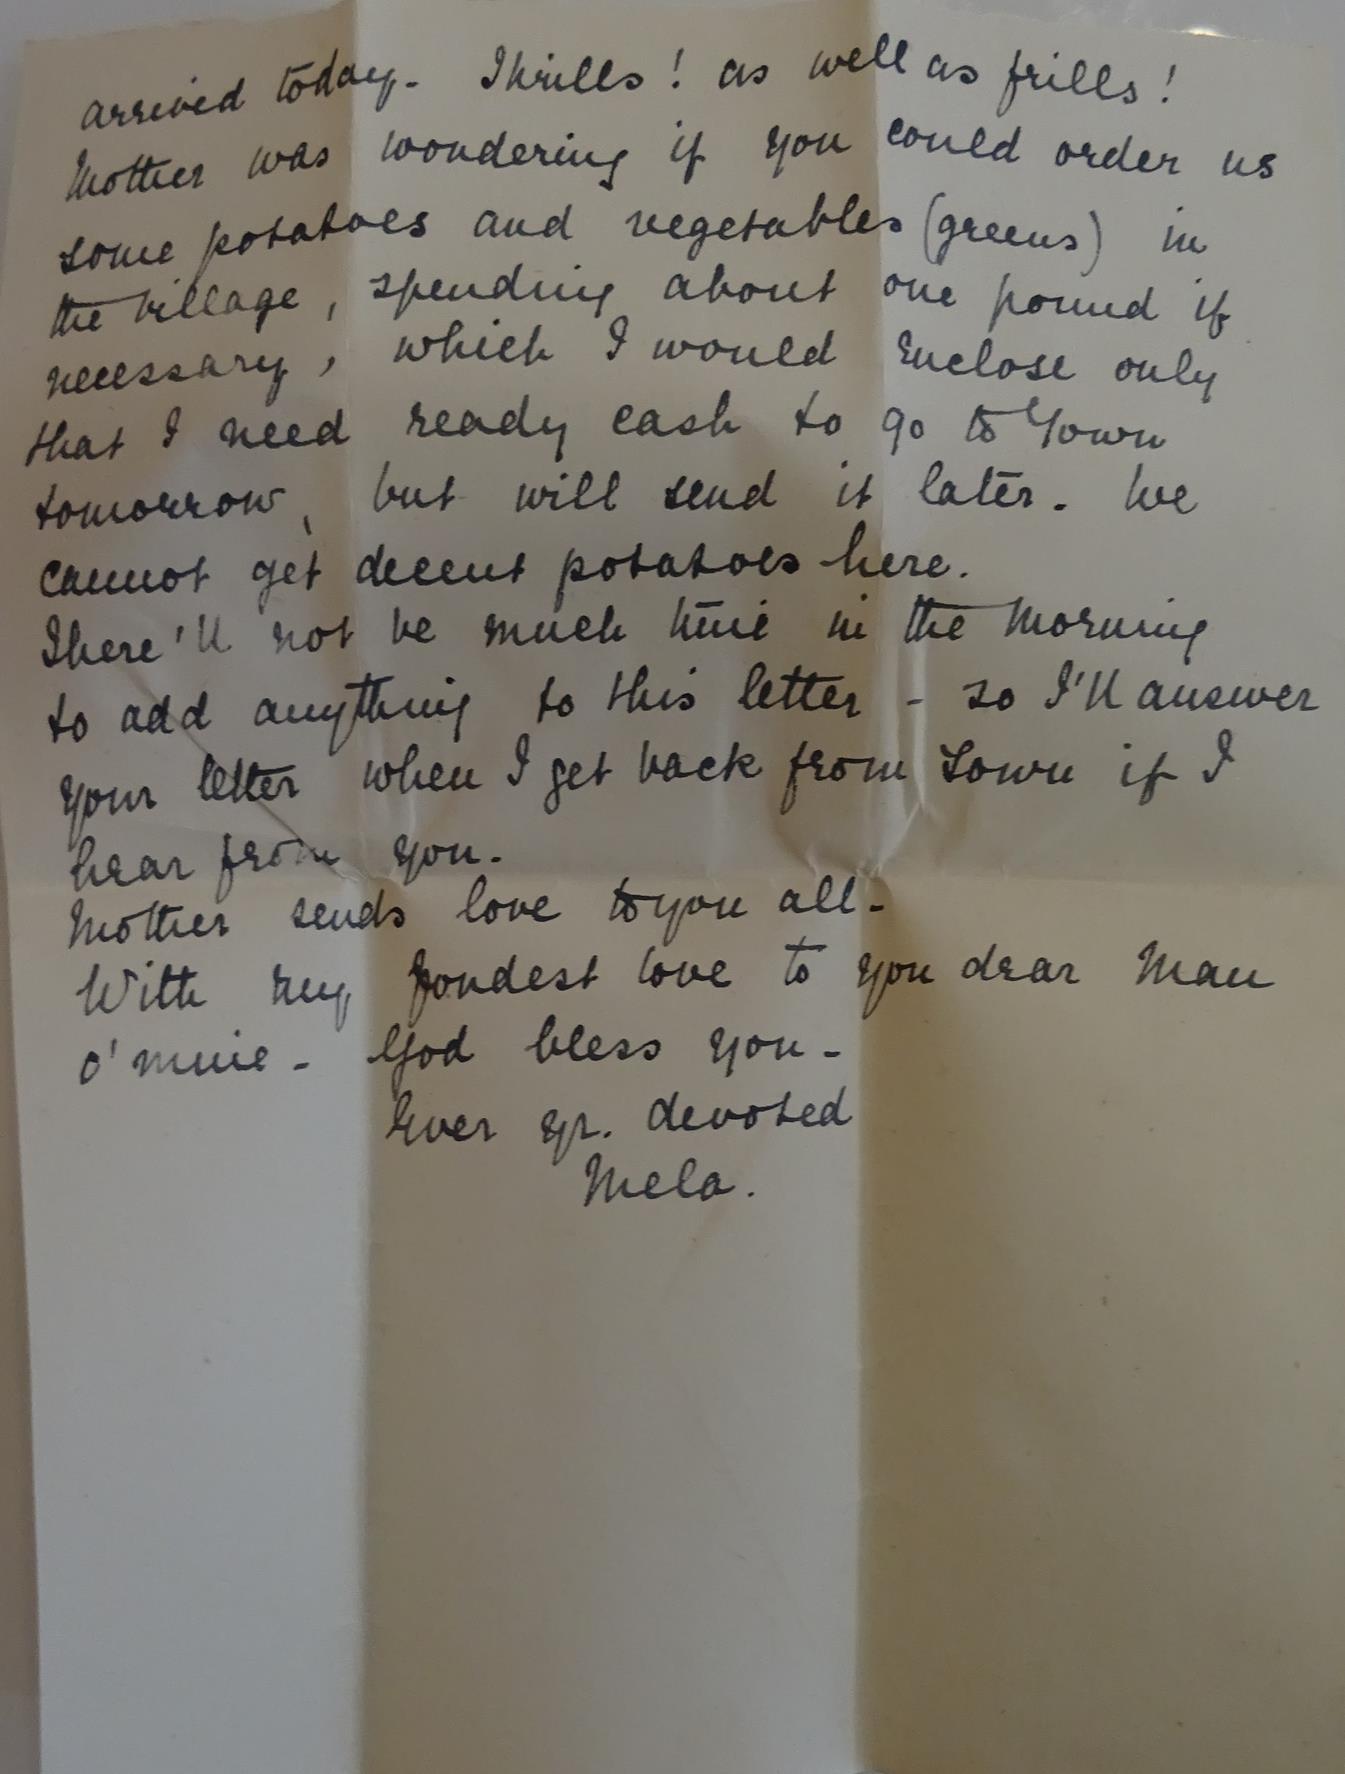 arrived today - Thrills! as well as frills!
Mother was wondering if you could order us
some potatoes and vegetables (greens) in
the village, spending about one pound if
necessary, which I would enclose only
that I need ready cash to go to Town
tomorrow, but will send it later. We
cannot get decent potatoes here.
There'll not be much time in the morning
to add anything to this letter - so I'll answer
your letter when I get back from Town if I
hear from you.
Mother sends love to you all -
With my fondest love to you dear Man
o' mine - God bless you -
Ever yr. devoted
Mela.